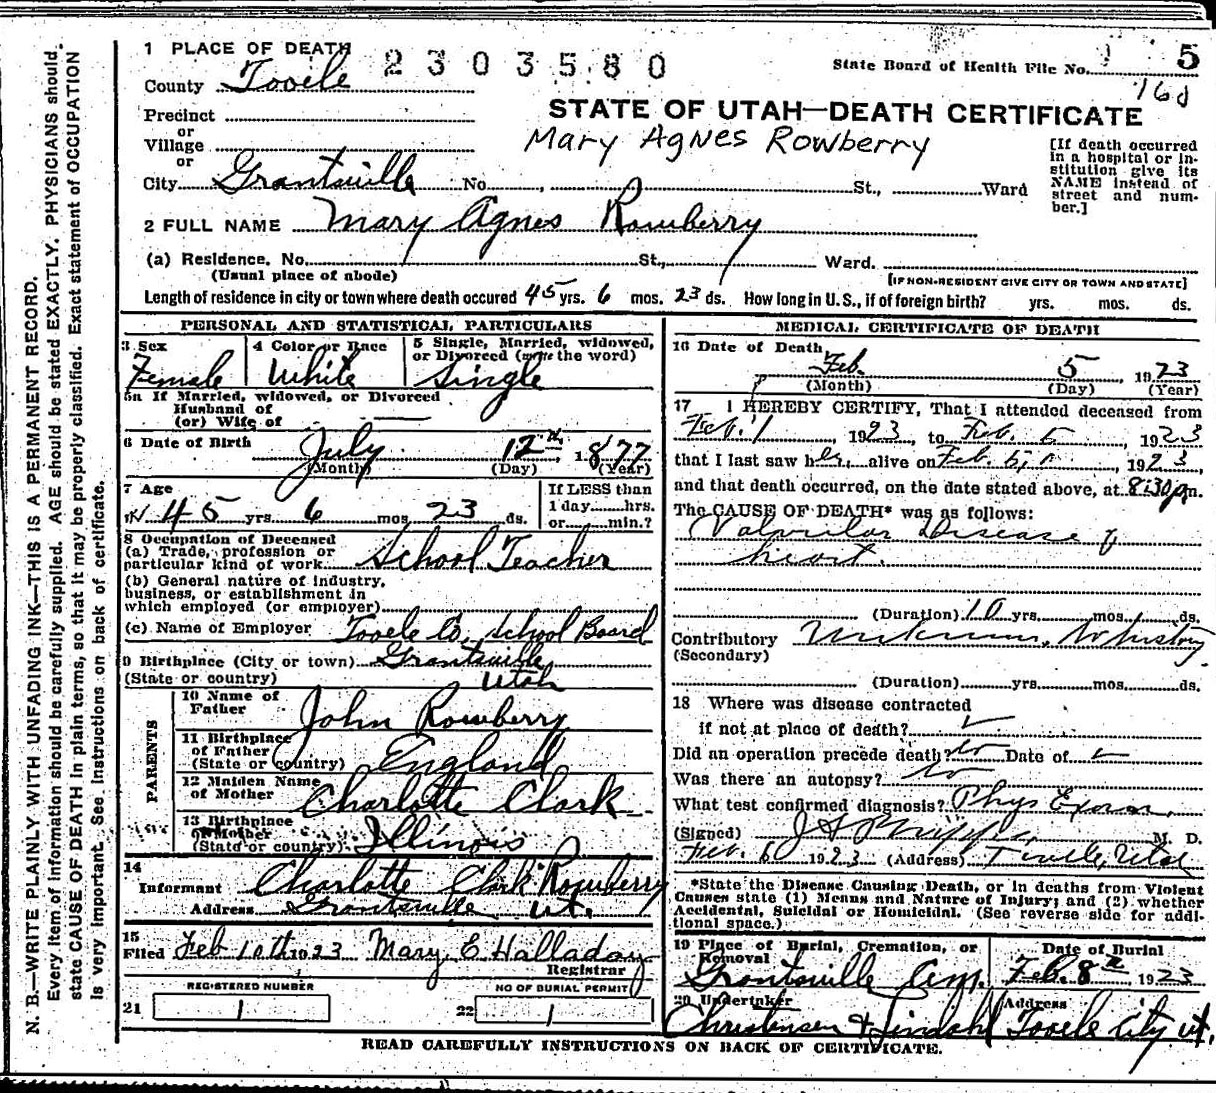 N. B.—WRITE PLAINLY WITH UNFADING INK—THIS IS A PERMANENT RECORD.
Every item of information should be carefully supplied. AGE should be stated EXACTLY. PHYSICIANS should
state CAUSE OF DEATH in plain terms, so that it may be properly classified. Exact statement of OCCUPATION
is very important. See instructions on back of certificate.
1 PLACE OF DEATH
2303580
State Board of Health File No. 5
County Tooele
160
STATE OF UTAH—DEATH CERTIFICATE
Precinct
or
Village
or
Mary Agnes Rowberry
[If death occurred
in a hospital or in-
stitution give its
NAME instead of
street and num-
ber.]
City Grantsville No. , St., Ward
2 FULL NAME Mary Agnes Rowberry
(a) Residence. No. St., Ward.
(Usual place of abode) [IF NON-RESIDENT GIVE CITY OR TOWN AND STATE]
Length of residence in city or town where death occured 45 yrs. 6 mos. 23 ds. How long in U. S., if of foreign birth? yrs. mos. ds.
PERSONAL AND STATISTICAL PARTICULARS
3 Sex
Female
4 Color or Race
White
5 Single, Married, widowed,
or Divorced (write the word)
Single
5a If Married, widowed, or Divorced
Husband of
(or) Wife of —
6 Date of Birth July 12th, 1877
(Month) (Day) (Year)
7 Age
45 yrs. 6 mos. 23 ds.
If LESS than
1 day......hrs.
or......min.?
8 Occupation of Deceased
(a) Trade, profession or
particular kind of work School Teacher
(b) General nature of industry,
business, or establishment in
which employed (or employer)
(c) Name of Employer Tooele Co, School Board
9 Birthplace (City or town) Grantsville
(State or country) Utah
PARENTS
10 Name of
Father John Rowberry
11 Birthplace
of Father
(State or country) England
12 Maiden Name
of Mother Charlotte Clark
13 Birthplace
of Mother
(State or country) Illinois
14
Informant Charlotte Clark Rowberry
Address Grantsville Ut.
15
Filed Feb 10th 1923 Mary E Halladay
Registrar
REGISTERED NUMBER
21 1
NO OF BURIAL PERMIT
22 1
MEDICAL CERTIFICATE OF DEATH
16 Date of Death
Feb. 5 1923
(Month) (Day) (Year)
17 I HEREBY CERTIFY, That I attended deceased from
Feb. 1, 1923, to Feb. 5, 1923
that I last saw her alive on Feb. 5, 1923,
and that death occurred, on the date stated above, at 8:30 p.m.
The CAUSE OF DEATH* was as follows:
Valvular Disease of
heart.
(Duration) 10 yrs. mos. ds.
Contributory Unknown, No history
(Secondary)
(Duration) yrs. mos. ds.
18 Where was disease contracted
if not at place of death?
Did an operation precede death? No Date of
Was there an autopsy? No
What test confirmed diagnosis? Phys Exam.
(Signed) M. D.
Feb. 6 1923 (Address) Tooele, Utah
*State the Disease Causing Death, or in deaths from Violent
Causes state (1) Means and Nature of Injury; and (2) whether
Accidental, Suicidal or Homicidal. (See reverse side for addi-
tional space.)
19 Place of Burial, Cremation, or
Removal
Grantsville Cem.
Date of Burial
Feb. 8th 1923
20 Undertaker
Christensen & Lindahl
Address
Tooele City Ut.
READ CAREFULLY INSTRUCTIONS ON BACK OF CERTIFICATE.